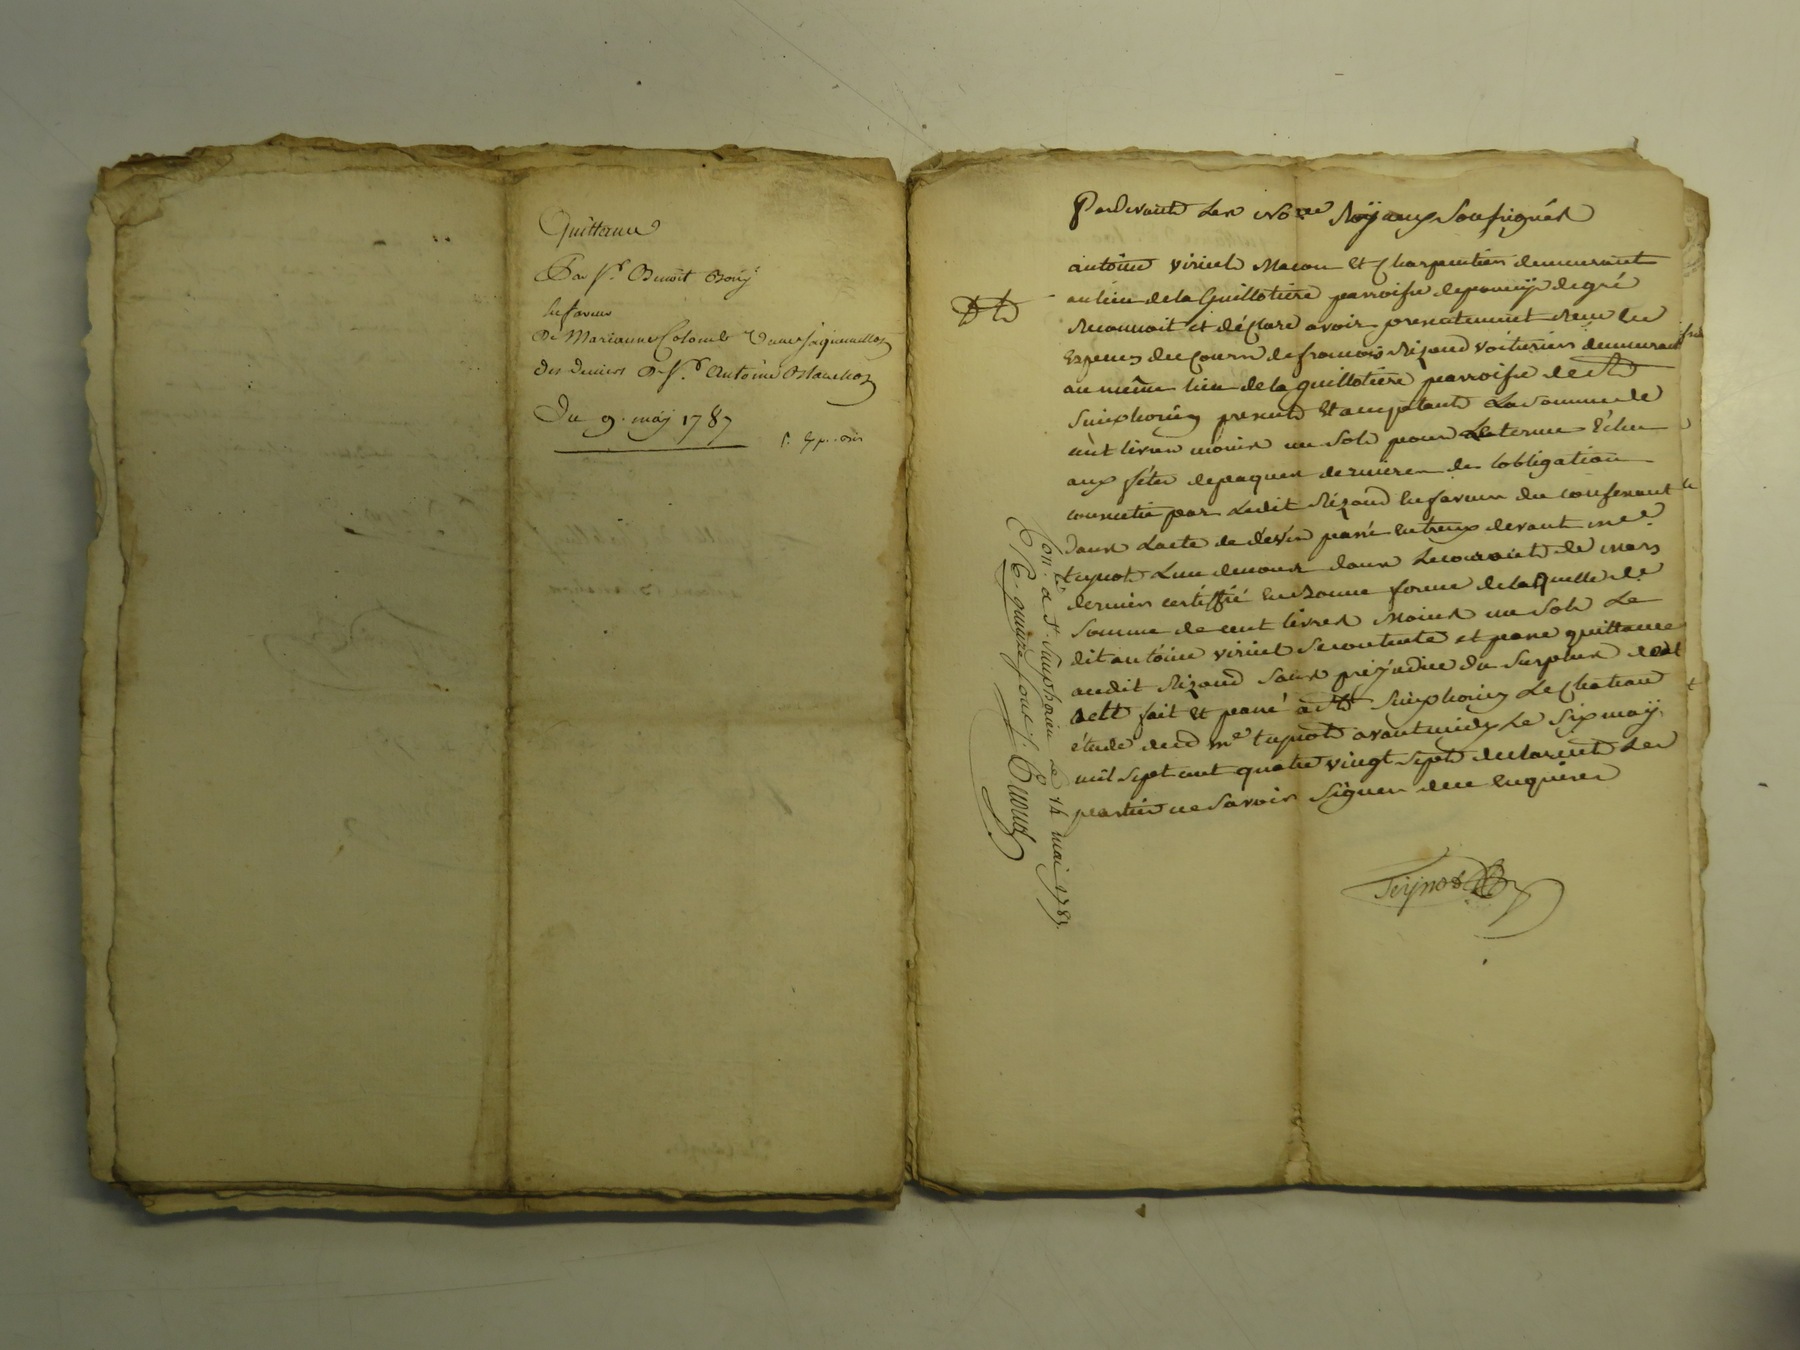 Quittance
Par Sr. Benoit Bouy
en faveur
De Marianne Colomb Veuve Jaquemellon
des deniers De Sr. Antoine Blanchon
Du 9. may 1787
Pardevant Les No.res Royaux Soussignés
antoine viriul Macon Et Charpentier demeurant
au lieu de la Guillotiere parroisse de
Reconnoit et déclare avoir presentement Reçu En
Especes du Cours de francois Rigaud voiturier demeurant
au même lieu de la guillotiere parroisse de St
Simphorien present Et acceptant La Somme de
cent livres moins un Sols pour Le terme Echu
aux fêtes de paques dernieres de lobligation
contractée par Ledit Rigaud En faveur du
dans Lacte de passé Entreux devant me
teynot Lun de nous dans Le courant de mars
dernier certiffié En Bonne forme de laquelle de
Somme de cent livres Moins un Sols Le
dit antoine viriul Se contente et passe quittance
audit Rigaud Sans préjudice du Surplus
acte fait Et passé a St Simphorien Le Chateau
étude dud me teynot avant midy Le Six may
mil Sept cent quatre vingt Sept declarent Les
parties ne Savoir Signer de ce Enquises
Teynot
Con.lé a St. Simphorien le 14 mai 1787.
quinze sous